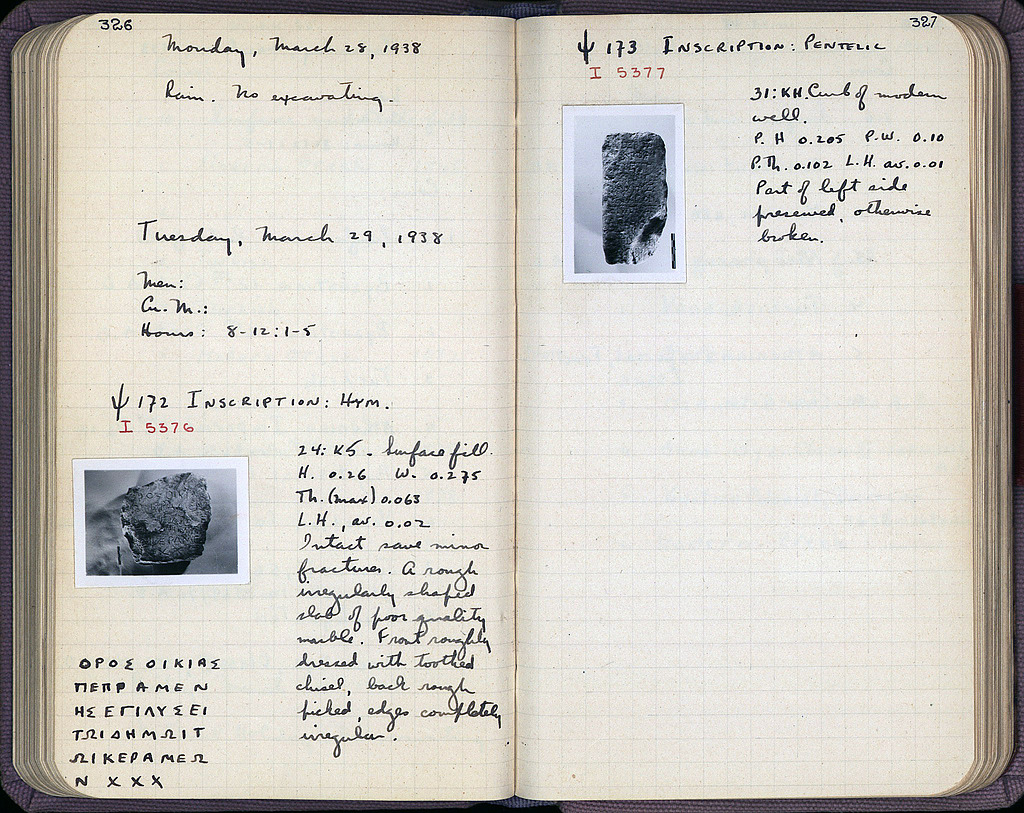 326
Monday, March 28, 1938
Rain. No excavating.
Tuesday, March 29, 1938
Men:
Cu. M.:
Hours: 8-12:1-5
Ψ 172 INSCRIPTION: HYM.
I 5376
24: KS - Surface fill.
H. 0.26 W. 0.275
Th. (max) 0.063
L.H., av. 0.02
Intact save minor
fractures. A rough
irregularly shaped
slab of poor quality
marble. Front roughly
dressed with toothed
chisel, back rough
picked, edges completely
irregular.
ΟΡΟΣ ΟΙΚΙΑΣ
ΠΕΠΡΑΜΕΝ
ΗΣ ΕΓΙΛΥΣΕΙ
ΤΩΙΔΗΜΩΙΤ
ΩΙΚΕΡΑΜΕΩ
Ν Χ Χ Χ
327
Ψ 173 INSCRIPTION: PENTELIC
I 5377
31: KH. Curb of modern
well.
P. H 0.205 P.W. 0.10
P.Th. 0.102 L.H. av. 0.01
Part of left side
preserved, otherwise
broken.